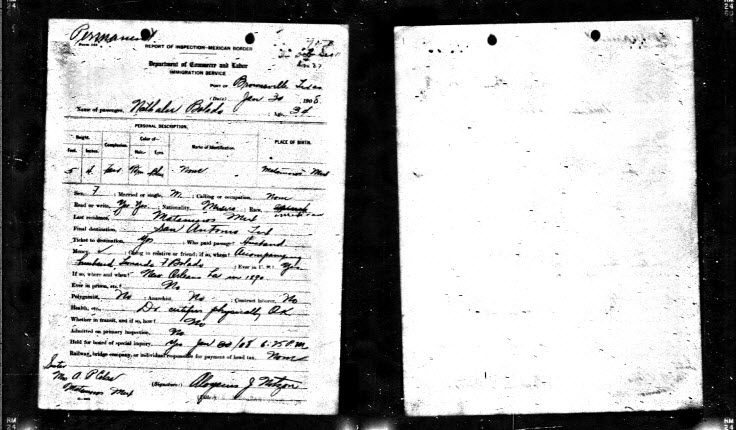 Permanent.
REPORT OF INSPECTION-MEXICAN BORDER
Department of Commerce and Labor
IMMIGRATION SERVICE
PORT OF Brownsville Texas
(Date) Jan 30 1908
Name of passenger, Bolado ; Age, 38
PERSONAL DESCRIPTION.
Height. Complexion. Color of— Marks of Identification. PLACE OF BIRTH.
Feet. Inches. Hair. Eyes.
5 4 None Matamoros Mex
Sex, F ; Married or single, M. ; Calling or occupation, None
Read or write, Yes Yes ; Nationality, Race,
Last residence, Matamoros Mex
Final destination, San Antonio Tex
Ticket to destination, Yes ; Who paid passage? Husband
Money ; Going to relative or friend; if so, whom? Accompanying
husband F Bolado ; Ever in U. S.? Yes
If so, where and when? New Orleans La in 1890
Ever in prison, etc.? No
Polygamist, No ; Anarchist, No ; Contract laborer, No
Health, etc., Dr certifies physically OK
Whether in transit, and if so, how? No
Admitted on primary inspection, No
Held for board of special inquiry, Yes Jan 30/08 6.25 P.M.
Railway, bridge company, or individual responsible for payment of head tax, None
Sister
Mrs A
Matamoros Mex
(Signature) Aloysius J